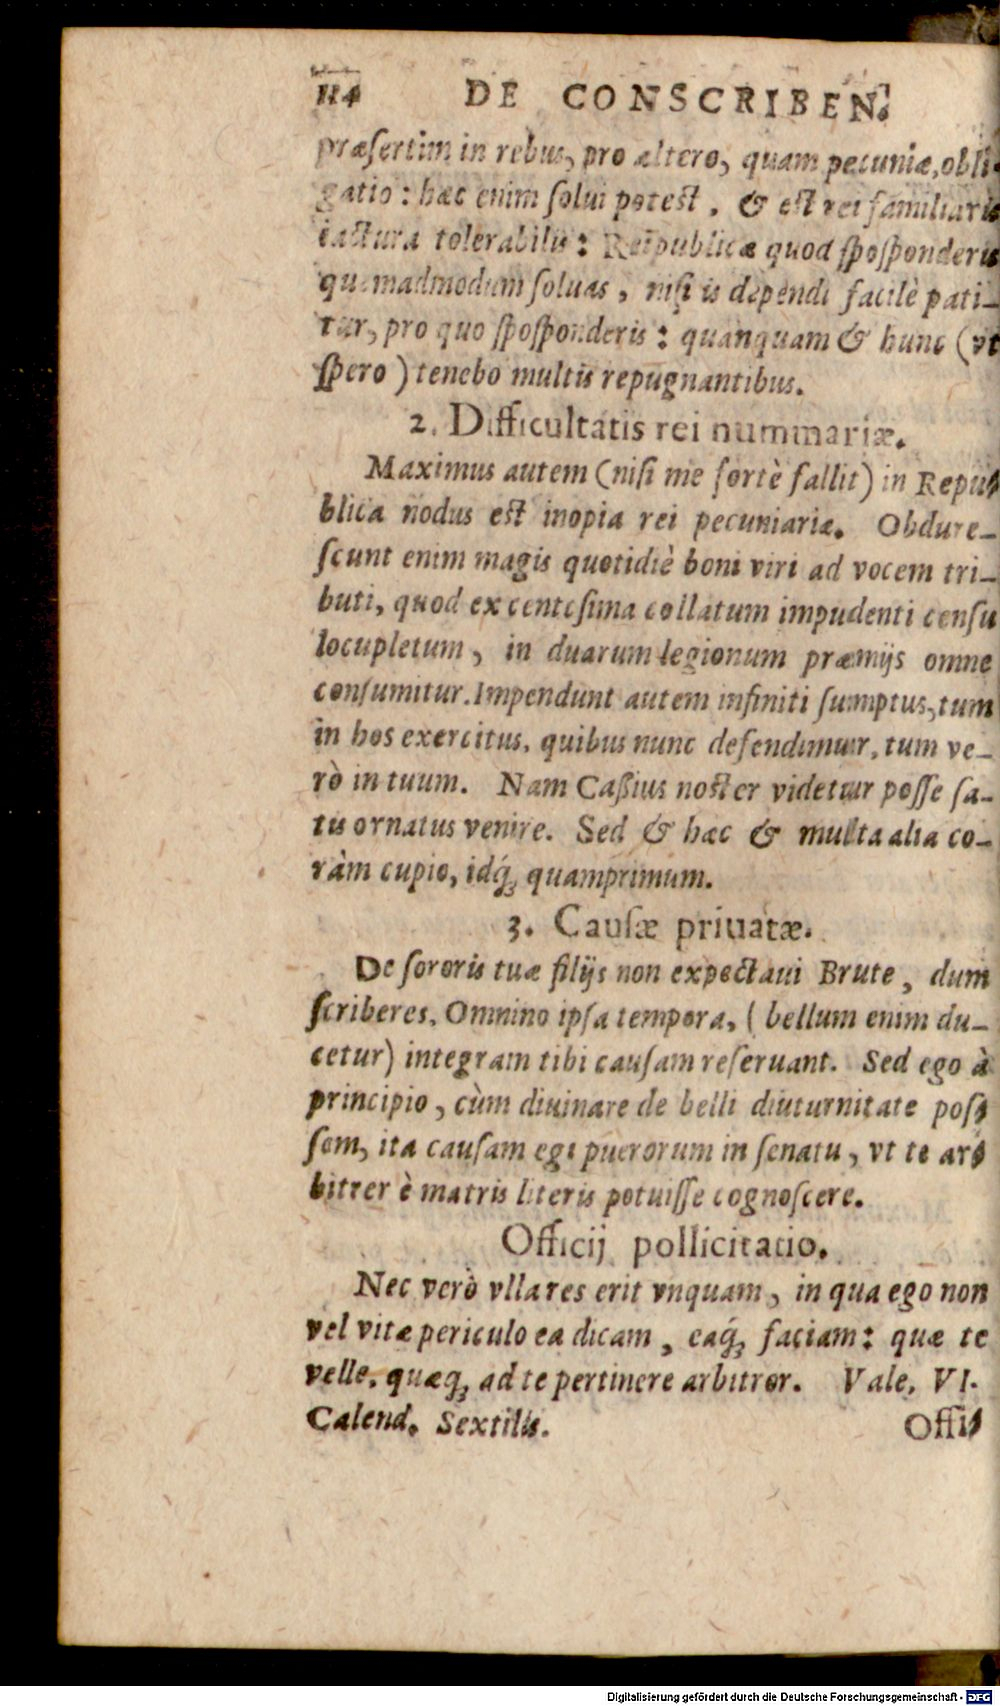 114 DE CONSCRIBEN.
præſertim in rebus, pro altero, quam pecuniæ, obli-
gatio: hæc enim ſolui poteſt, & eſt rei familiaris
iactura tolerabilis: Reipublicæ quod ſpoſponderis
quemadmodum ſoluas, niſi is dependi facilè pati-
tur, pro quo ſpoſponderis: quanquam & hunc (vt
ſpero) tenebo multis repugnantibus.
2. Difficultatis rei nummariæ.
Maximus autem (niſi me fortè fallit) in Repu-
blica nodus eſt inopia rei pecuniariæ. Obdure-
ſcunt enim magis quotidiè boni viri ad vocem tri-
buti, quod ex centeſima collatum impudenti cenſu
locupletum, in duarum legionum præmijs omne
conſumitur. Impendunt autem infiniti ſumptus, tum
in hos exercitus, quibus nunc defendimur, tum ve-
rò in tuum. Nam Caßius noſter videtur poſſe ſa-
tis ornatus venire. Sed & hæc & multa alia co-
ràm cupio, idq́; quamprimum.
3. Cauſæ priuatæ.
De ſororis tuæ filijs non expectaui Brute, dum
ſcriberes. Omnino ipſa tempora, (bellum enim du-
cetur) integram tibi cauſam reſeruant. Sed ego à
principio, cùm diuinare de belli diuturnitate poſ-
ſem, ita cauſam egi puerorum in ſenatu, vt te ar-
bitrer è matris literis potuiſſe cognoſcere.
Officij pollicitatio.
Nec verò vlla res erit vnquam, in qua ego non
vel vitæ periculo ea dicam, eaq́; faciam: quæ te
velle, quæq; ad te pertinere arbitror. Vale, VI.
Calend. Sextilis. Offi-
Digitalisierung gefördert durch die Deutsche Forschungsgemeinschaft - DFG